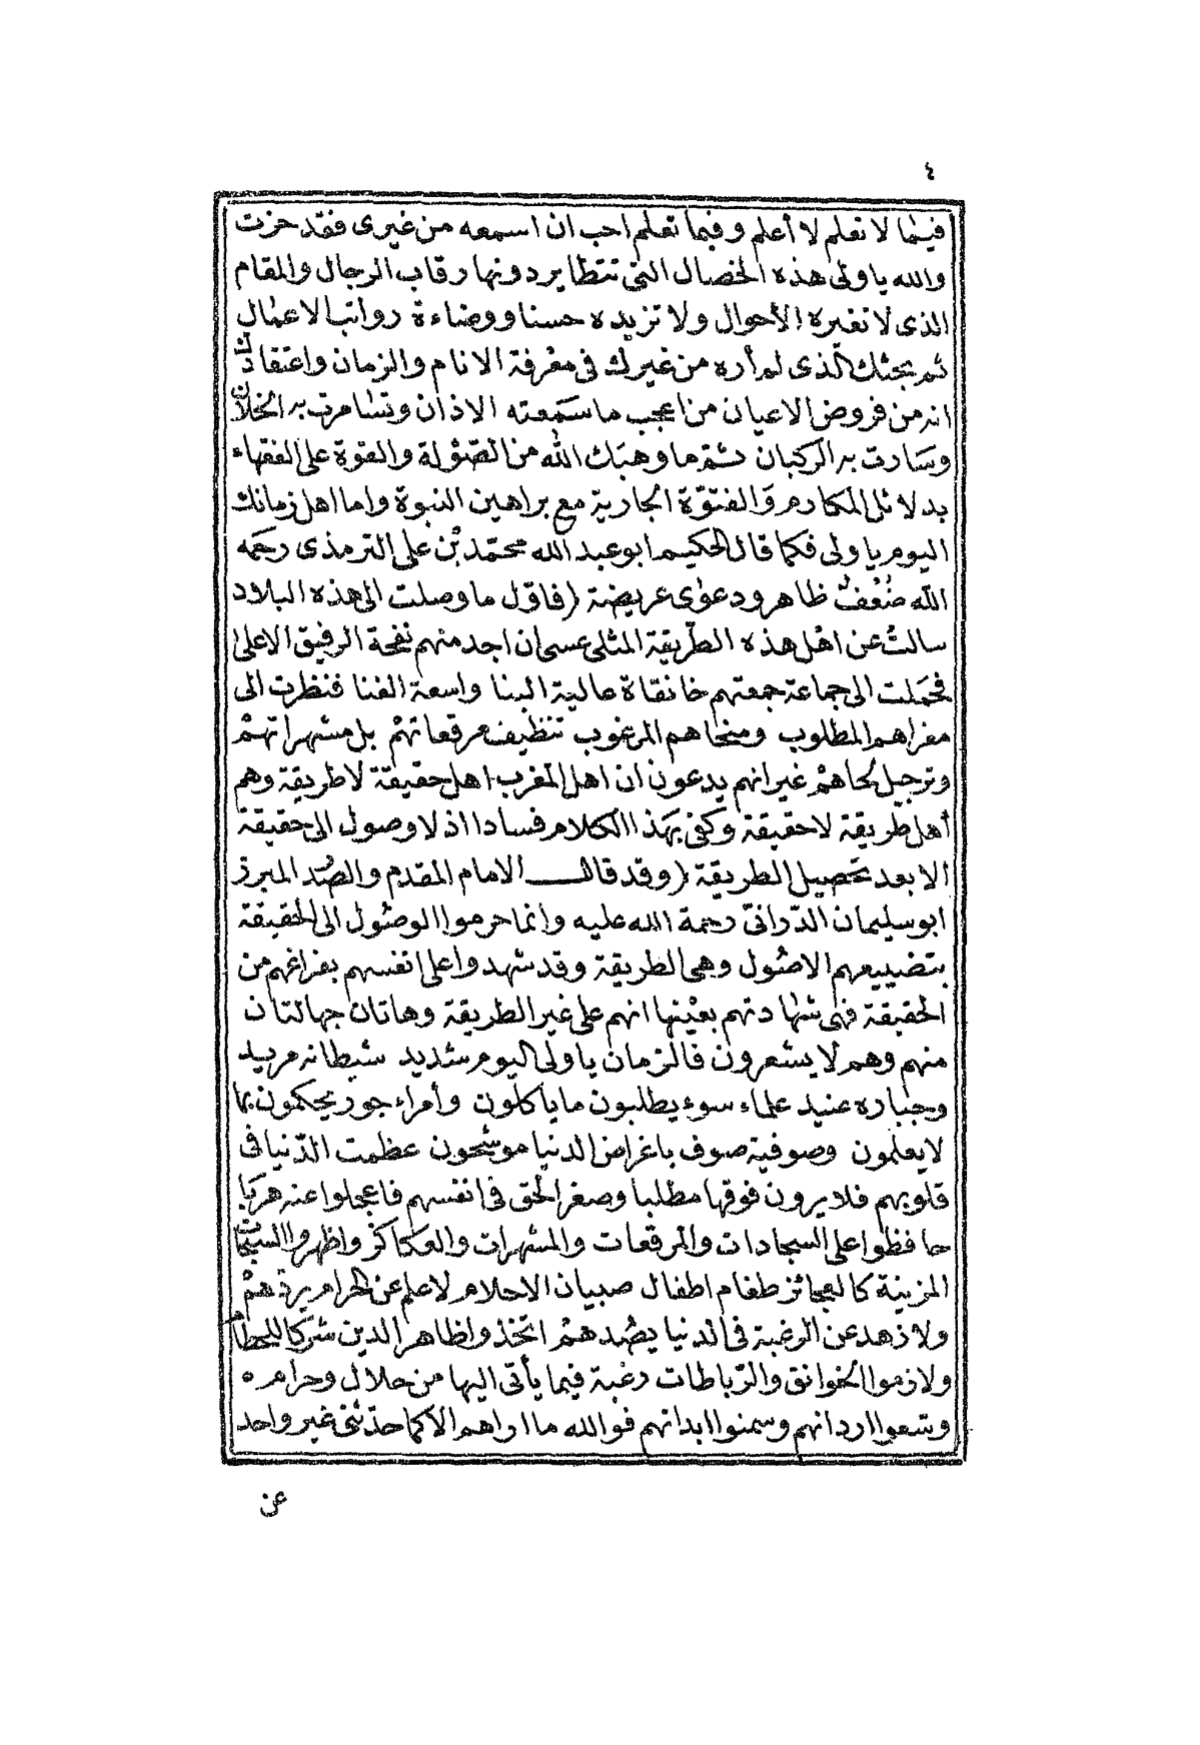 ٤
فيما لا تعلم لا أعلم وفيما تعلم احب ان اسمعه من غيرى فقد حزت
والله يا ولى هذه الخصال التى تتطاير دونها رقاب الرجال والمقام
الذى لا تغيره الأحوال ولا تزيده حسنا ووضاءة رواتب الاعمال
ثم بحثك الذى لم أره من غيرك فى معرفة الانام والزمان واعتقادك
انه من فروض الاعيان من اعجب ما سمعته الاذان وتسامرت به الخلان
وسارت به الركبان ثم ما وهبك الله من الصولة والقوة على الفقهاء
بدلائل المكارم والفتوة الجارية مع براهين النبوة واما اهل زمانك
اليوم يا ولى فكما قال الحكيم ابو عبد الله محمّد بْن على الترمذى رحمه
الله ضعف ظاهر ودعوى عريضة (فاوّل ما وصلت الى هذه البلاد
سالت عن اهل هذه الطريقة المثلى عسى ان اجد منهم نفحة الرفيق الاعلى
فحملت الى جماعة جمعتهم خانقاة عالية البنا واسعة الفنا فنظرت الى
مغزاهم المطلوب ومنحاهم المرغوب تنظيف مرقعاتهم بل مشهراتهم
وترجيل لحاهم غير انهم يدعون ان اهل المغرب اهل حقيقة لا طريقة وهم
أهل طريقة لا حقيقة وكفى بهذا الكلام فسادا اذ لا وصول الى حقيقة
الا بعد تحصيل الطريقة (وقد قال الامام المقدم والصدر المبرز
ابو سليمان الدّرانىّ رحمة الله عليه وانما حرموا الوصول الى الحقيقة
بتضييعهم الاصول وهى الطريقة وقد شهدوا على انفسهم بفراغهم من
الحقيقة فهى شهادتهم بعينها انهم على غير الطريقة وهاتان جهالتان
منهم وهم لا يشعرون فالزمان يا ولى اليوم شديد شيطانه مريد
وجباره عنيد علماء سوء يطلبون ما ياكلون وأمراء جور يحكمون بما
لا يعلمون وصوفية صوف باغراض الدنيا موشحون عظمت الدّنيا فى
قلوبهم فلا يرون فوقها مطلبا وصغر الحق فى انفسهم فاعجلوا عنه هربا
حافظوا على السجادات والمرقعات والمشهرات والعكاكز واظهروا السبحات
المزينة كالعجائز طغام اطفال صبيان الاحلام لا علم عن الحرام يردهم
ولا زهد عن الرغبة فى الدنيا يصدهم اتخذوا ظاهر الدين شركا للحطام
ولازموا الخوانق والرّباطات رغبة فيما يأتى اليها من حلال وحرام ه
وسّعوا اردانهم وسمنوا ابدانهم فوالله ما اراهم الا كما حدّثنى غير واحد
عن